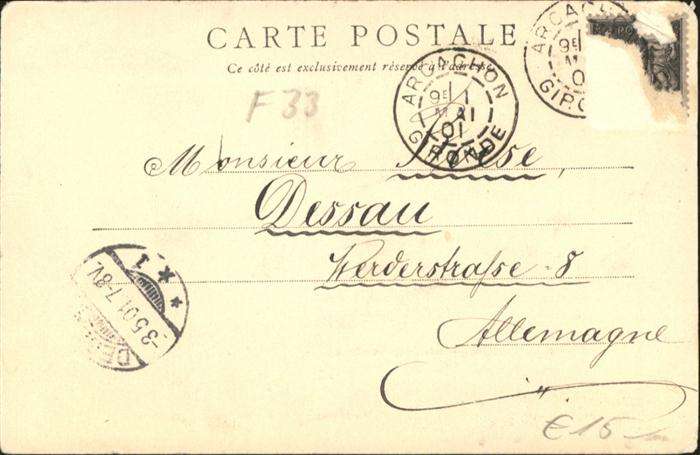 CARTE POSTALE
Ce côté est exclusivement réservé à l'adresse
F 33
ARCACHON
9E 1
MAI
01
GIRONDE
ARCAC
9E
M
0
GIRO
Monsieur
Dessau
Werderstraße 8
Allemagne
1
-3.5.01.7-8V.
DE
€15